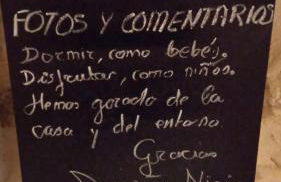 FOTOS Y COMENTARIOS
Dormir, como bebés.
Disfrutar, como niños.
Hemos gozado de la
casa y del entorno
Gracias